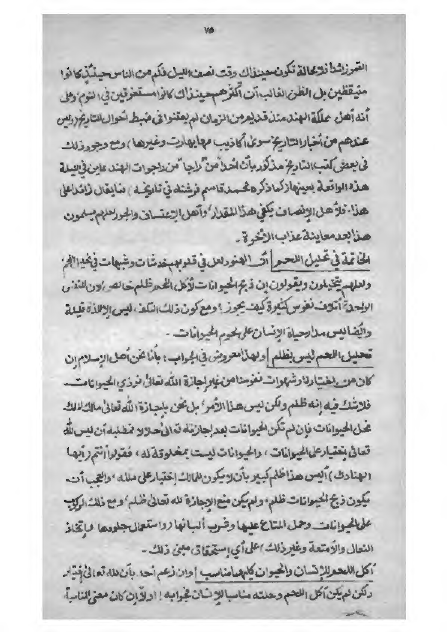 ٧٥
القمر زائدا فلا محالة تكون حينذاك وقت نصف الليل فكم من الناس حينئذ كانوا
متيقظين بل الظن الغالب أن أكثرهم حينذاك كانوا مستغرقين في النوم وعلى
أنه أهل مملكة الهند منذ قديم من الزمان لم يعتنوا في ضبط أحوال التاريخ (وليس
عندهم من أخبار التاريخ سوى أكاذيب مهابهارت وغيرها) ومع وجود ذلك
في بعض كتب التاريخ مذكور بأن أحدا من "راجا" من راجوات الهند عاين في ليلة
هذه الواقعة بعينها كما ذكره محمد قاسم فرشته في تاريخه، فما يقال زائدا على
هذا، فلأهل الإنصاف يكفي هذا المقدار، وأهل الإعتساف والجور لعلهم يسلمون
هذا بعد معاينة عذاب الآخرة.
الخاتمة في تحليل اللحم | أن الهنود لعل في قلوبهم خدشات وشبهات في تحليل اللحم
ولعلهم يتخيلون ويقولون إن ذبح الحيوانات لأكل اللحم ظلم خالص، لأن للنفس
الواحدة أتلاف نفوس كثيرة كيف يجوز؟ ومع كون ذلك التلف، ليس إلا للذة قليلة
وأيضا ليس مدار حياة الإنسان على لحوم الحيوانات.
تحليل اللحم ليس بظلم | ولهذا معروض في الجواب: بأنا نحن أهل الإسلام إن
كان من إختيارنا وشهوات نفوسنا من غير إجازة الله تعالى نوذي الحيوانات،
فلا شك فيه إنه ظلم ولكن ليس هذا الأمر، بل نحن بإجازة الله تعالى مالك الملك
نحل الحيوانات فإن لم تكن الحيوانات بعد إجازته تعالى حلالا فمطلبه أن ليس لله
تعالى إختيار على الحيوانات، والحيوانات ليست بمخلوقة له، فقولوا أنتم (أيها
الهنادك) أليس هذا ظلم كبير بأن لا يكون للمالك إختيار على ملكه، والعجب أن
يكون ذبح الحيوانات ظلم، ولم يكن منع الإجازة لله تعالى ظلم؟ ومع ذلك الركوب
على الحيوانات وحمل المتاع عليها وشرب ألبانها (واستعمال جلودها وإتخاذ
النعال والأمتعة وغير ذلك) على أي إستحقاق مبني ذلك.
أكل اللحم للإنسان والحيوان كليهما مناسب | وإن زعم أحد بأن لله تعالى إختيار
ولكن لم يكن أكل اللحم وحلته مناسبا للإنسان فجوابه: أولا إن كان معنى المناسبة